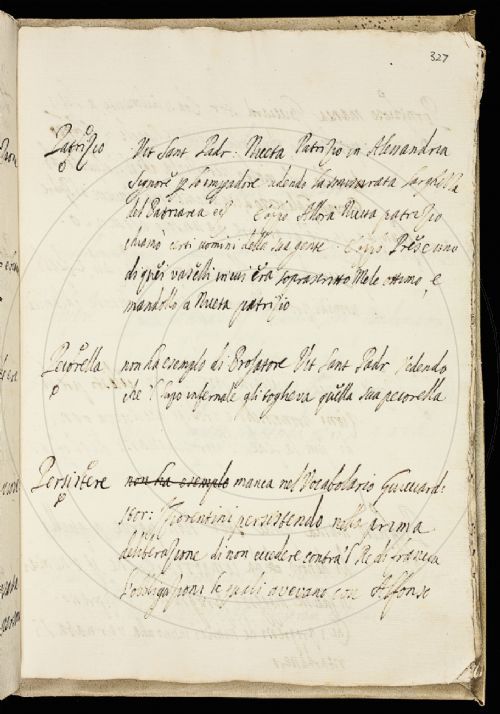 327
Patrizio Vit Sant Padr: Niceta Patrizio in Alessandria
Signore p lo imperadore udendo la smisurata larghezza
del Patriarca
Allora Niceta patrizio
chiamò certi uomini della sua gente
Prese uno
di quei vaselli in cui era soprascritto Mele ottimo, e
mandollo a Niceta patrizio
Pecorella non ha esemplo di Prosatore Vit Sant Padr Vedendo
che 'l lupo infernale gli toglieva quella sua pecorella
Persistere non ha esemplo manca nel Vocabolario Guicciard:
stor: Fiorentini persistendo nella prima
deliberazione di non eccedere contra 'l Re di francia
l'obligazioni le quali avevano con Alfonso